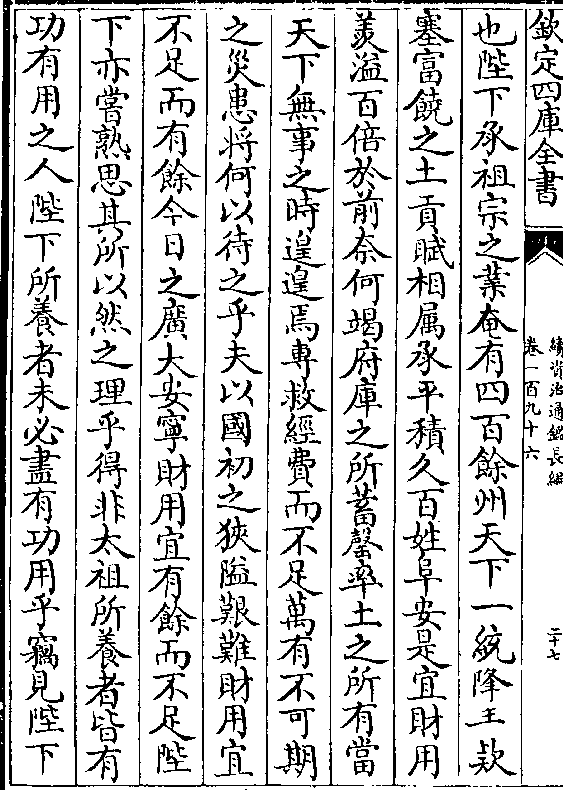 欽定四庫全書
續資治通鑑長編
卷一百九十六
二十七
也陛下承祖宗之業奄有四百餘州天下一統降王欵
塞富饒之土貢賦相屬承平積久百姓阜安是宜財用
羨溢百倍於前奈何竭府庫之所蓄罄率土之所有當
天下無事之時遑遑焉專救經費而不足萬有不可期
之災患將何以待之乎夫以國初之狹隘艱難財用宜
不足而有餘今日之廣大安寧財用宜有餘而不足陛
下亦嘗熟思其所以然之理乎得非太祖所養者皆有
功有用之人陛下所養者未必盡有功用乎竊見陛下